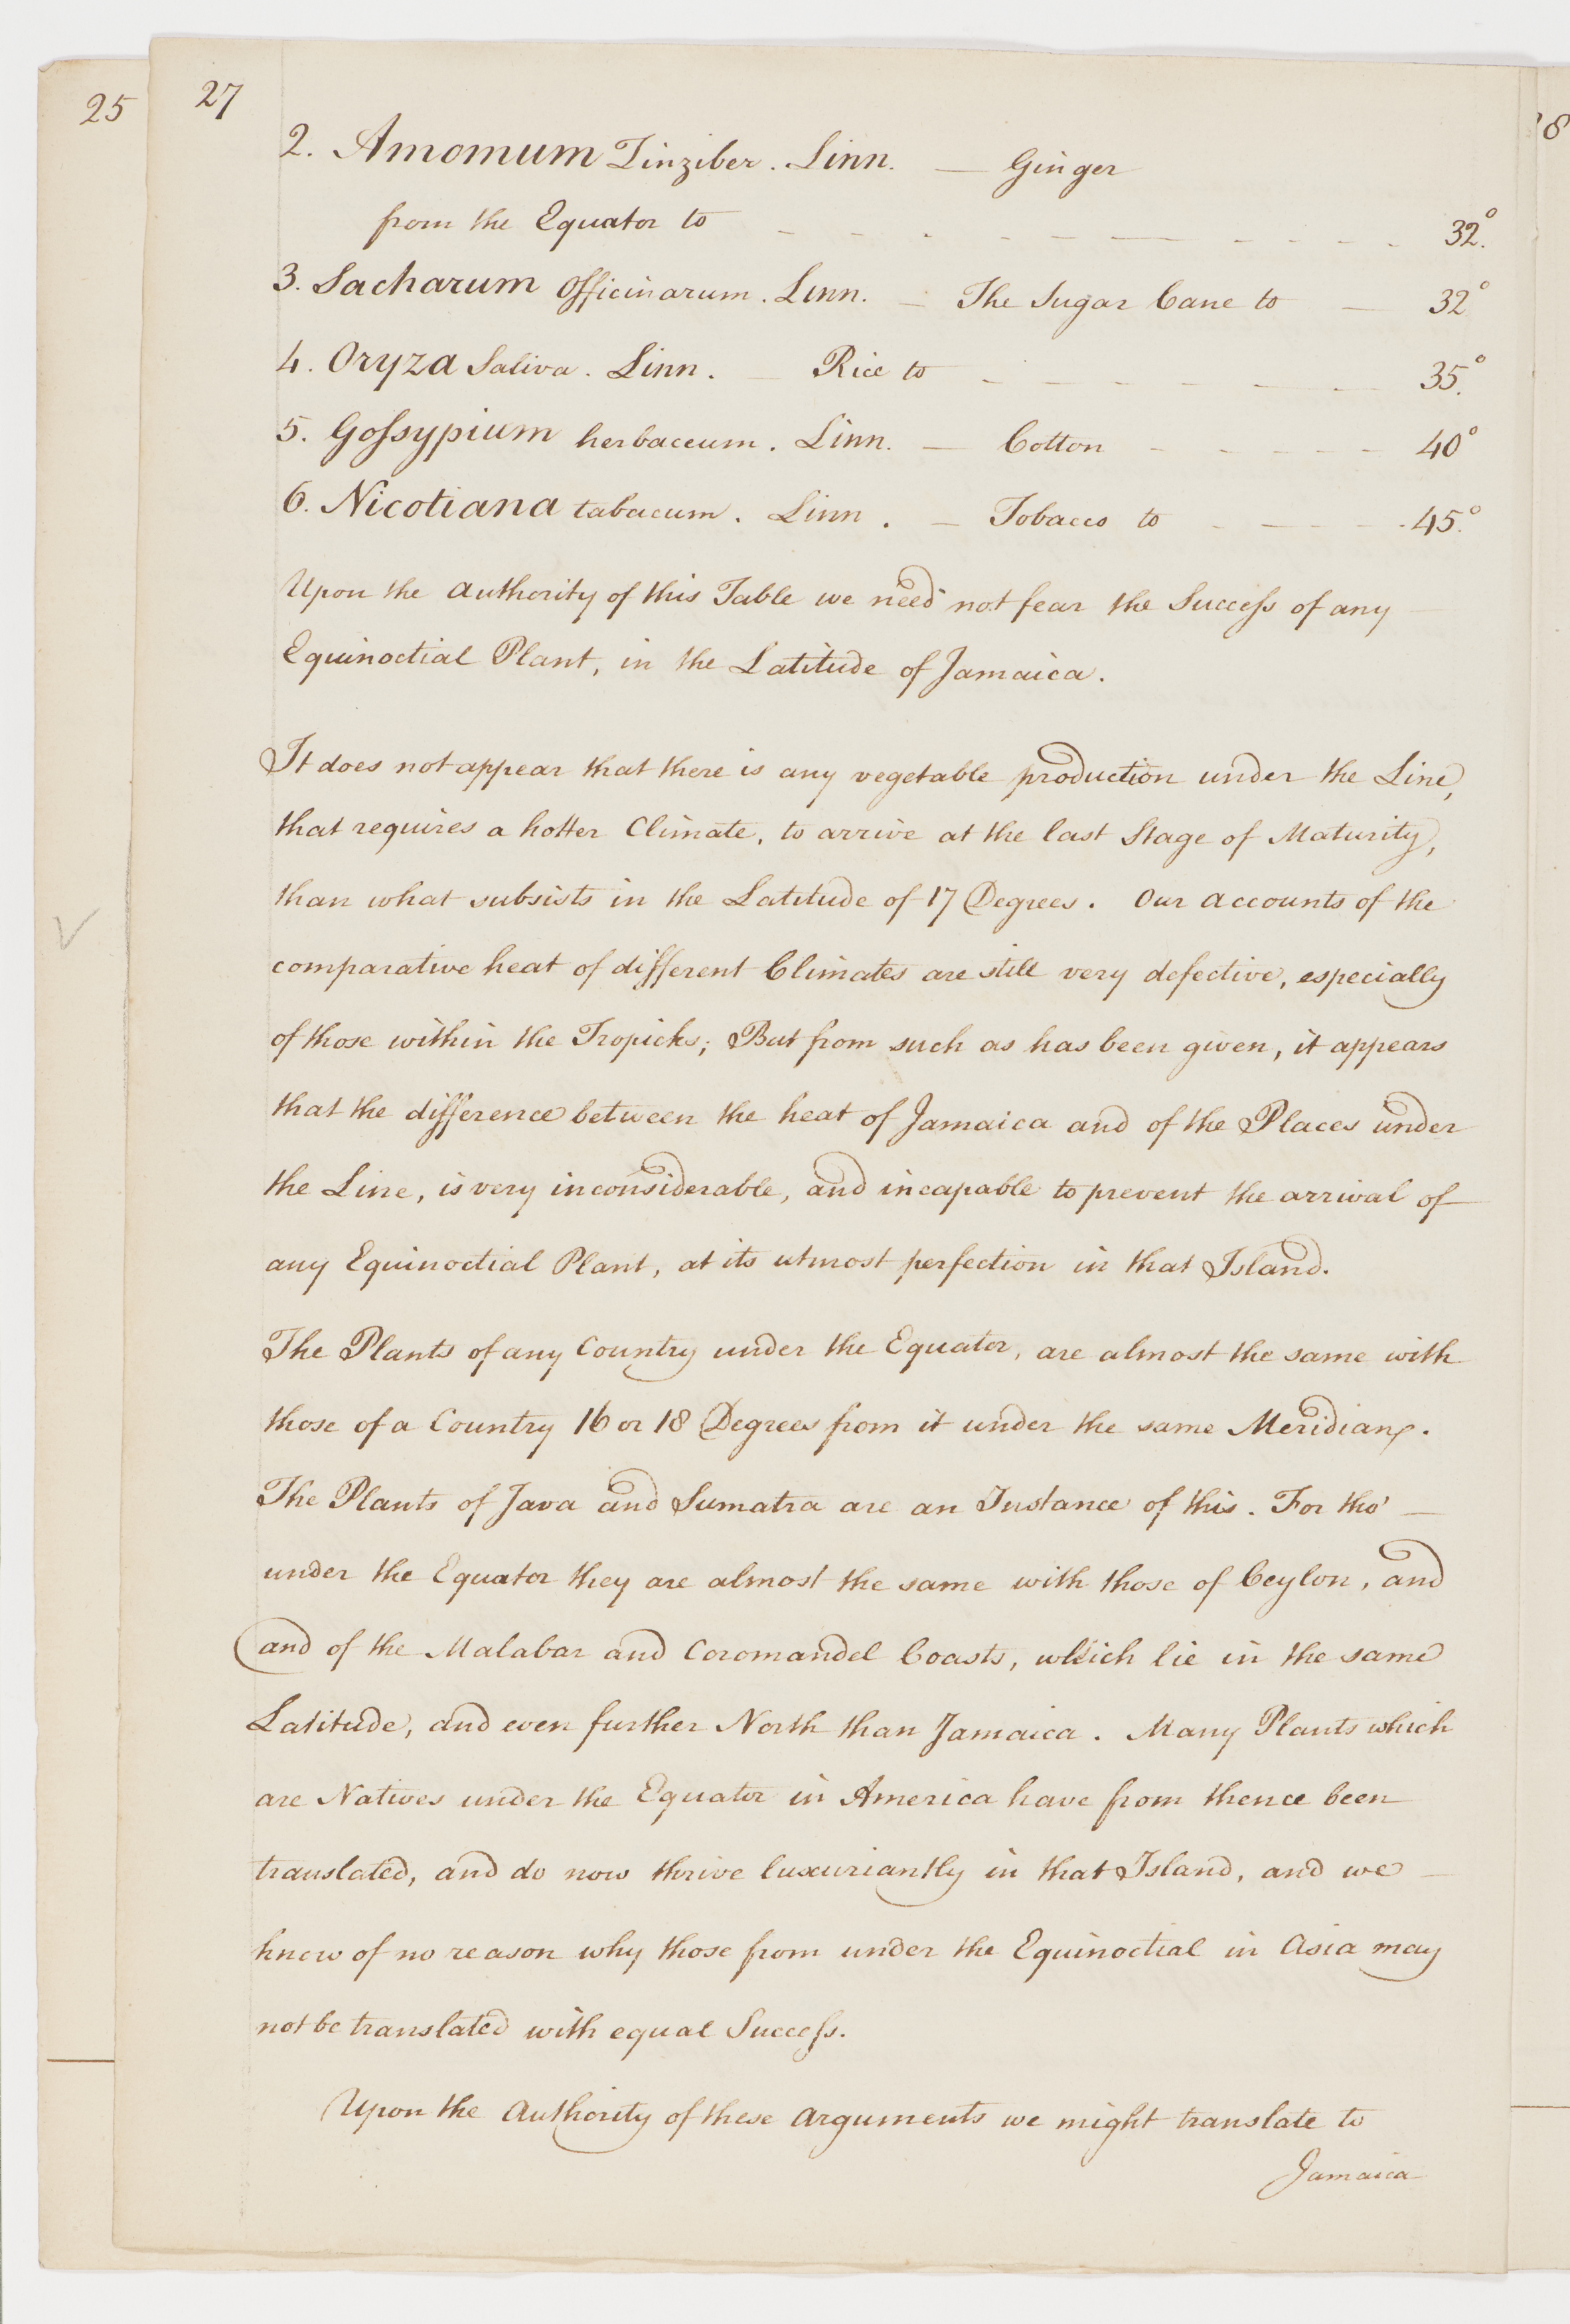 25
27
28
2. Amomum Zinziber. Linn. — Ginger
from the Equator to - - - - - — - - - - 32.°
3. Sacharum Officinarum. Linn. — The Sugar Cane to — 32°
4. Oryza Sativa. Linn. — Rice to - - - - - — - — 35.°
5. Goſsypium herbaceum. Linn. — Cotton - - - - - - 40°
6. Nicotiana tabacum. Linn. — Tobacco to - — - - - 45.°
Upon the authority of this Table we need not fear the Succeſs of any —
Equinoctial Plant, in the Latitude of Jamaica.
It does not appear that there is any vegetable production under the Line,
that requires a hotter Climate, to arrive at the last Stage of Maturity,
than what subsists in the Latitude of 17 Degrees. Our accounts of the
comparative heat of different Climates are still very defective, especially
of those within the Tropicks; But from such as has been given, it appears
that the difference between the heat of Jamaica and of the Places under
the Line, is very inconsiderable, and incapable to prevent the arrival of
any Equinoctial Plant, at its utmost perfection in that Island.
The Plants of any Country under the Equator, are almost the same with
those of a Country 16 or 18 Degrees from it under the same Meridian.
The Plants of Java and Sumatra are an Instance of this. For tho' —
under the Equator they are almost the same with those of Ceylon, and
and of the Malabar and Coromandel Coasts, which lie in the same
Latitude, and even further North than Jamaica. Many Plants which
are Natives under the Equator in America have from thence been
translated, and do now thrive luxuriantly in that Island, and we —
know of no reason why those from under the Equinoctial in Asia may
not be translated with equal Succeſs.
Upon the Authority of these arguments we might translate to
Jamaica